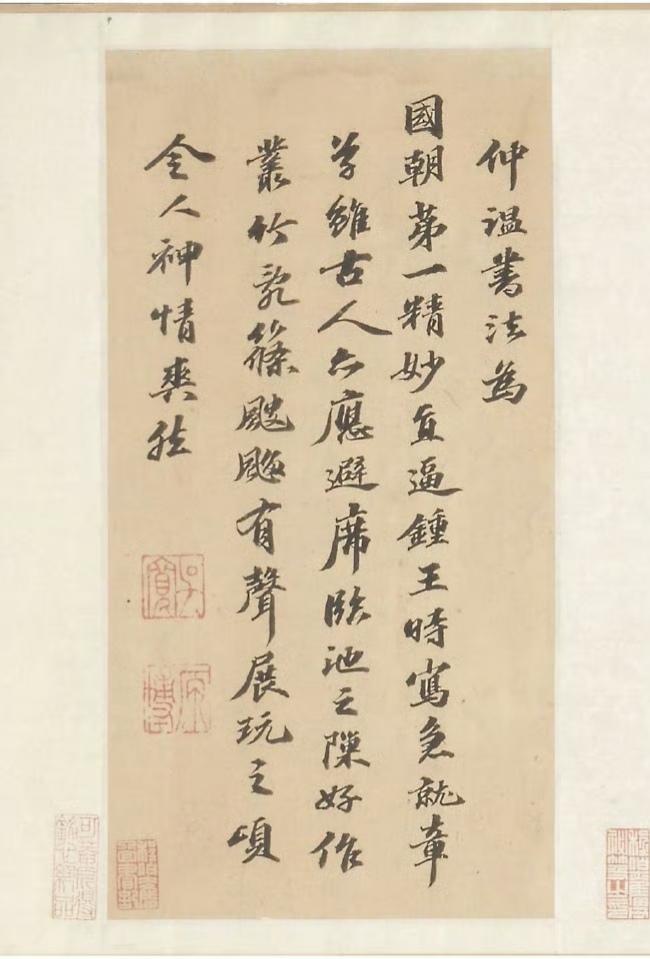 仲温書法為
國朝第一精妙直逼鍾王時寫急就章
草雖古人亦應避席臨池之隙好作
叢竹亂篠颼飀有聲展玩之頃
令人神情爽然